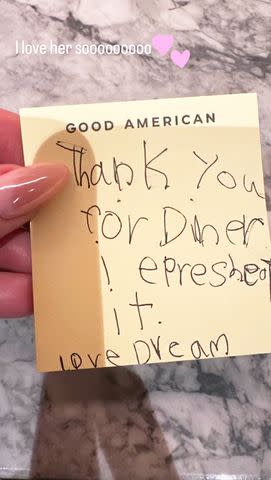 I love her sooooooooo
GOOD AMERICAN
Thank You
for Diner
I epresheat
it.
love Dream